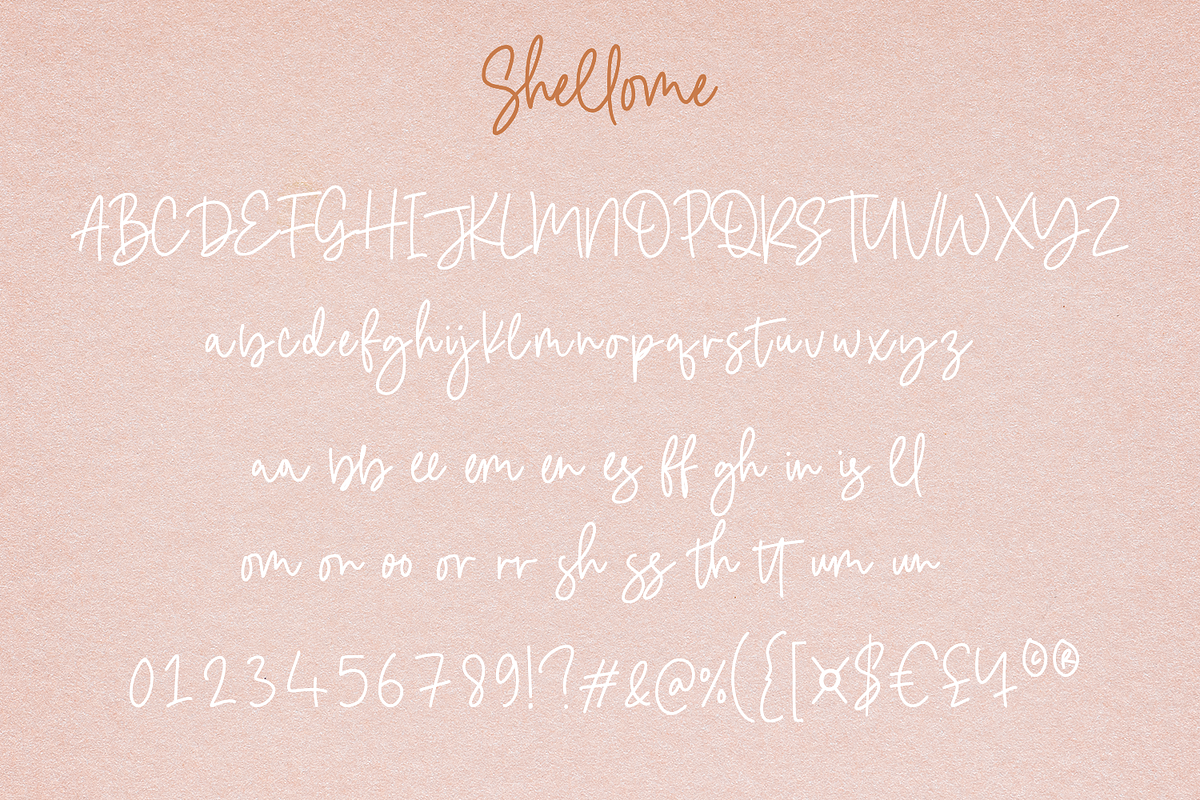 Shellome
ABCDEFGHIJKLMNOPQRSTUVWXYZ
abcdefghijklmnopqrstuvwxyz
aa bb ee em en es ff gh in is ll
om on oo or rr sh ss th tt um un
0123456789!?#&@%({[¤$€£¥©®